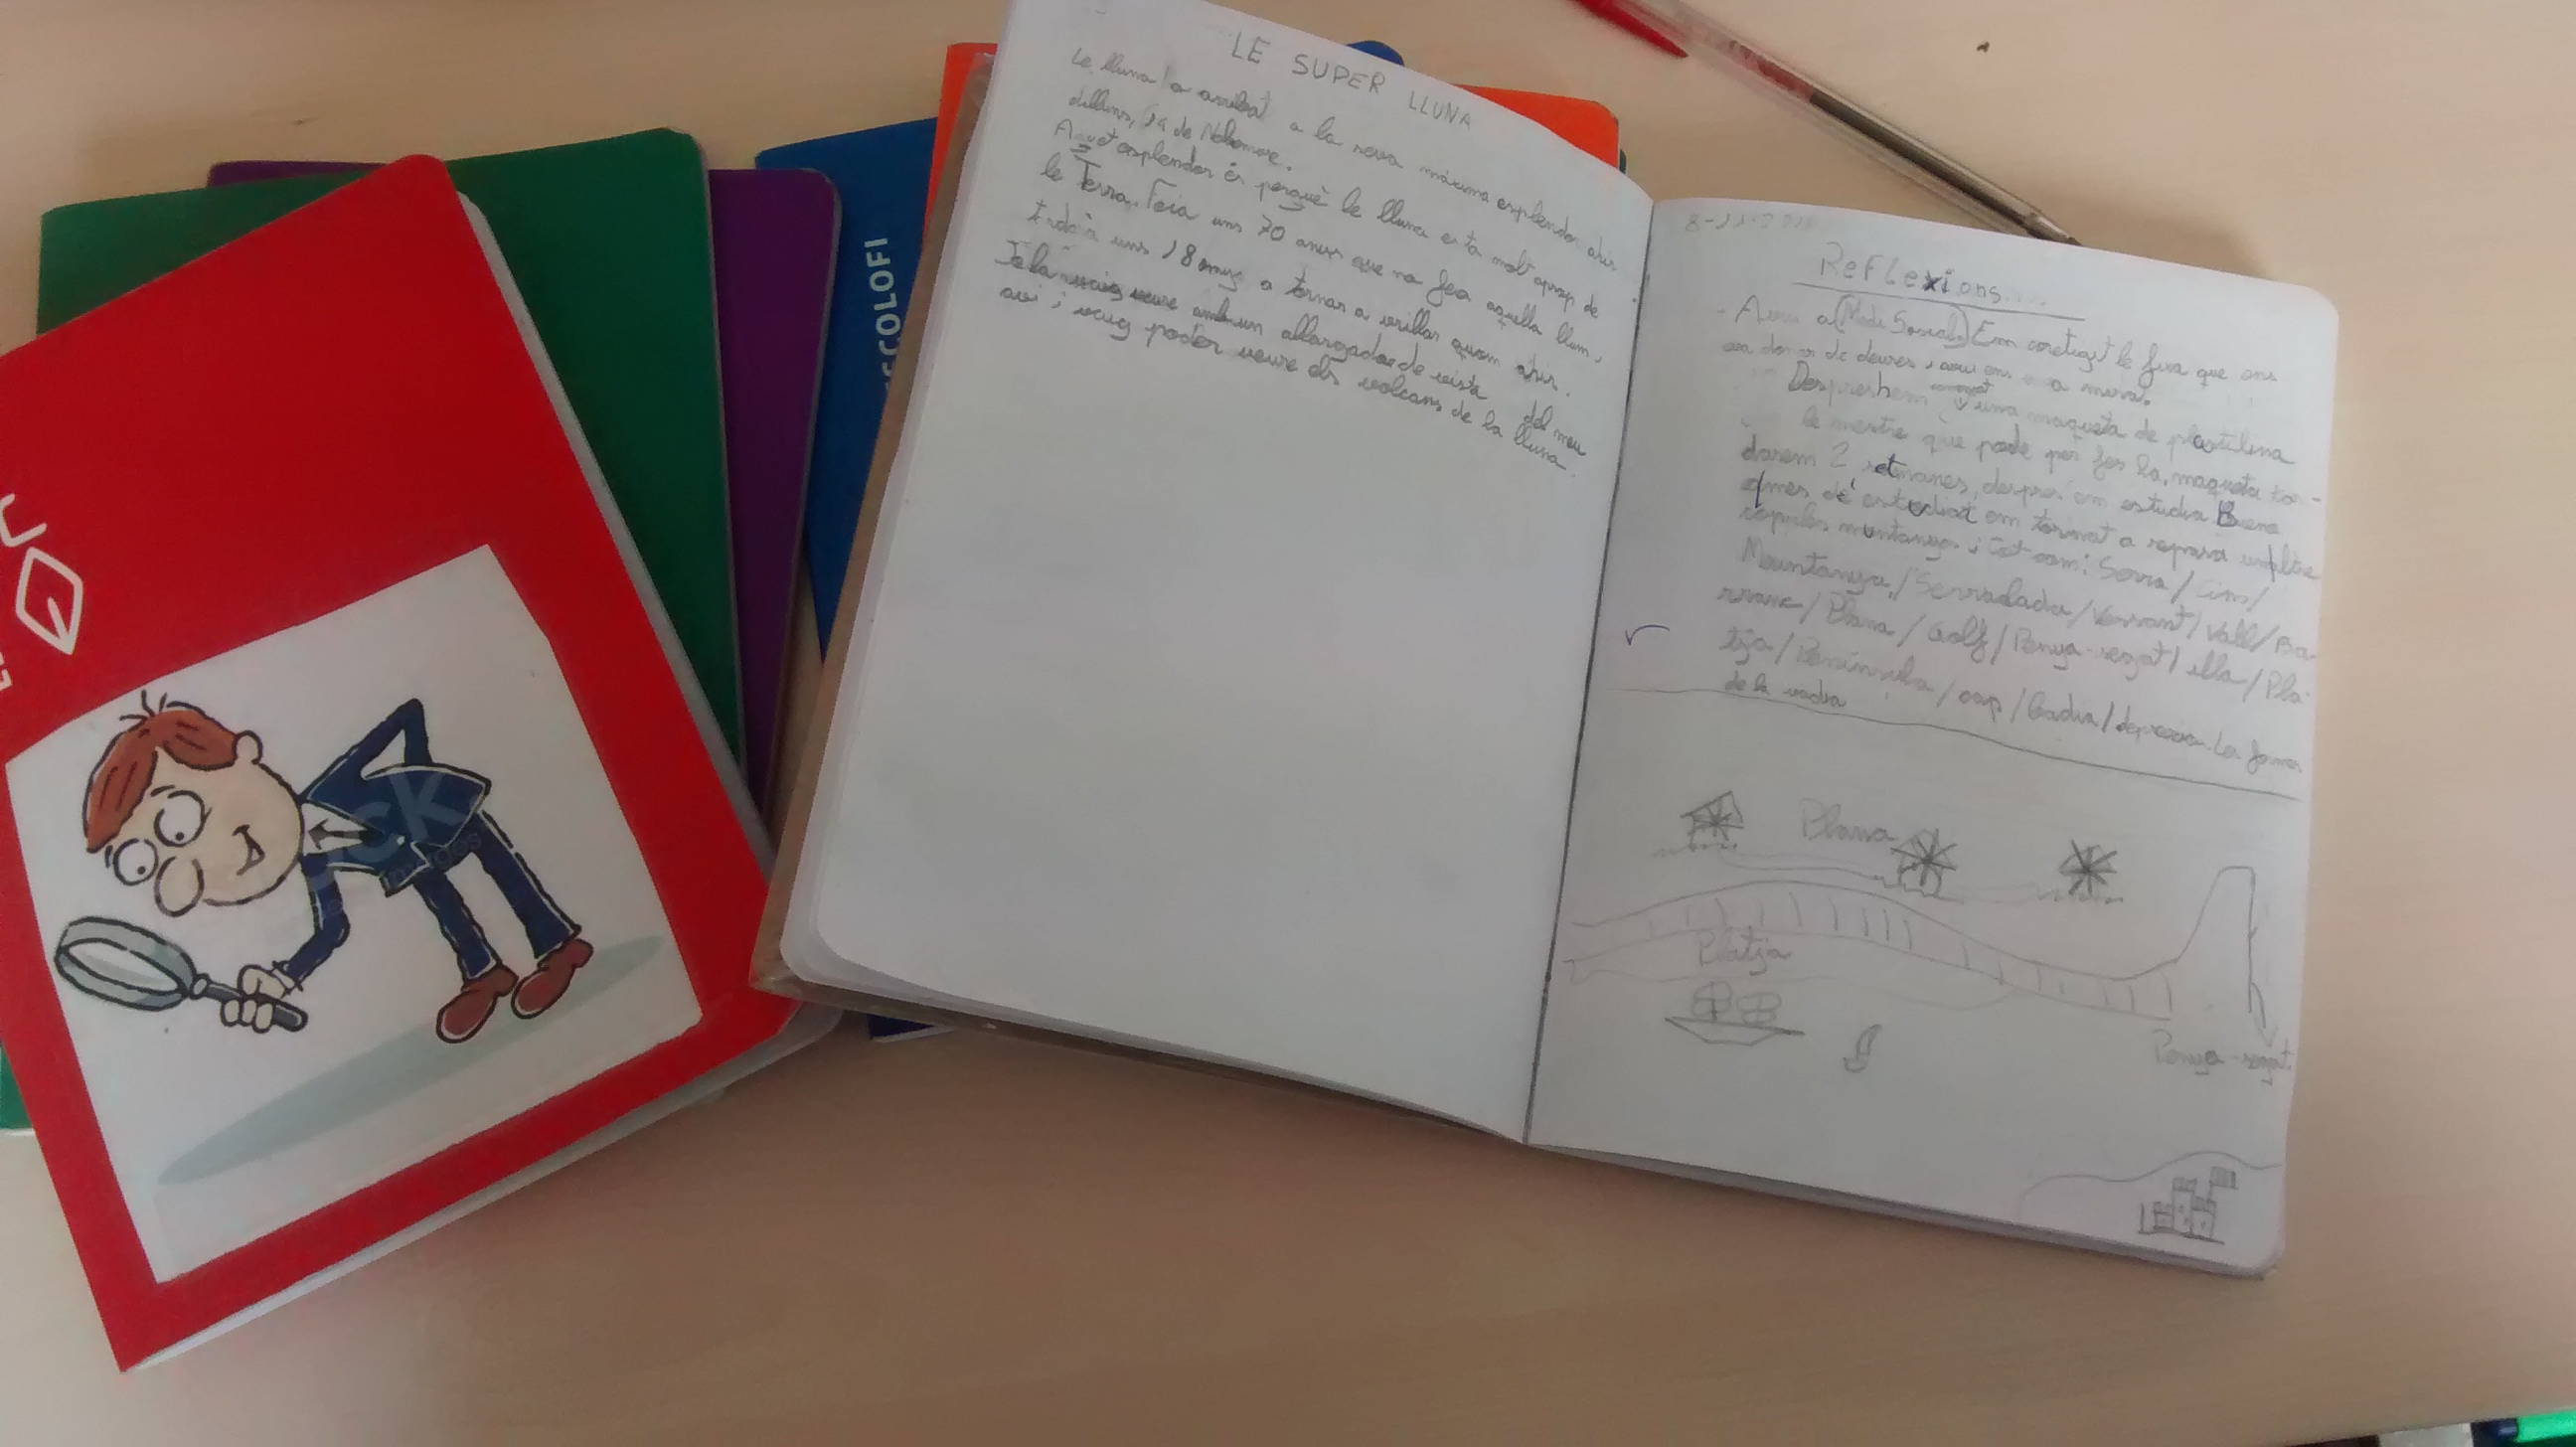 COLOFI
LE SUPER LLUNA
Le lluna a arribat a la seva màxima esplendor ahir
dilluns, 14 de
Aquet esplendor és perquè le lluna està molt aprop de
le Terra. Feia uns 70 anys que no feia aquella llum,
tardarà uns 18 anys a tornar a brillar quom ahir.
Jo la vaig veure amb un allargador de vista del meu
avi i vaig poder veure els volcans de la lluna.
Reflexions....
Avui a Medi Social. Em coretgit le fixa que ens
va donar de deures i avui ens
Despres hem començat una maqueta de plastilina
le mestre que poder per fer la maqueta tar-
darem 2 setmanes, despres em estudia Bueno
qmes de estudiat em tornat a repasa unaltre
muntanyes i tot com: Serra / Cim /
Mountanya / Serralada / Vessant / Vall / Ba-
rranc / Plana / Golf / Penya-segat / illa / Pla-
tja / Peninsula / cap / badia / depresio. Les formes
de la
Plana
Platja
Penya-segat